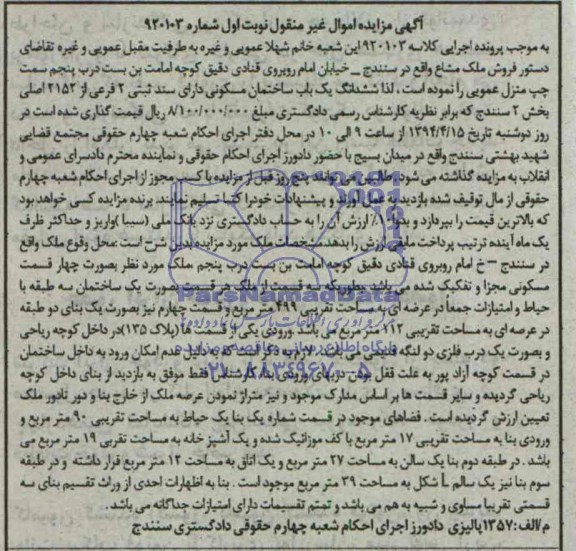 آگهی مزایده اموال غیر منقول نوبت اول شماره ۹۲۰۱۰۳
به موجب پرونده اجرایی کلاسه ۹۲۰۱۰۳ این شعبه خانم شهلا عمویی و غیره به طرفیت مقبل عمویی و غیره تقاضای
دستور فروش ملک مشاع واقع در سنندج _ خیابان امام روبروی قنادی دقیق کوچه امامت بن بست درب پنجم سمت
چپ منزل عمویی را نموده است ، لذا ششدانگ یک باب ساختمان مسکونی دارای سند ثبتی ۲ فرعی از ۲۱۵۲ اصلی
بخش ۲ سنندج که برابر نظریه کارشناس رسمی دادگستری مبلغ ۸/۱۰۰/۰۰۰/۰۰۰ ریال قیمت گذاری شده است در
روز دوشنبه تاریخ ۱۳۹۴/۴/۱۵ از ساعت ۹ الی ۱۰ در محل دفتر اجرای احکام شعبه چهارم حقوقی مجتمع قضایی
شهید بهشتی سنندج واقع در میدان بسیج با حضور دادورز اجرای احکام حقوقی و نماینده محترم دادسرای عمومی و
انقلاب به مزایده گذاشته می شود . طالبین می توانند پنج روز قبل از مزایده با کسب مجوز از اجرای احکام شعبه چهارم
حقوقی از مال توقیف شده بازدید به عمل آورند و پیشنهادات خود را کتبا تسلیم نمایند. برنده مزایده کسی خواهد بود
که بالاترین قیمت را بپردازد و بدوا ۱۰٪ ارزش آن را به حساب دادگستری نزد بانک ملی (سیبا )واریز و حداکثر ظرف
یک ماه آینده ترتیب پرداخت مابقی ارزش را بدهد. مشخصات ملک مورد مزایده بدین شرح است :محل وقوع ملک واقع
در سنندج – خ امام روبروی قنادی دقیق کوچه امامت بن بست درب پنجم .ملک مورد نظر بصورت چهار قسمت
مسکونی مجزا و تفکیک شده می باشد بطوریکه سه قسمت از ملک هر قسمت بصورت یک ساختمان سه طبقه با
حیاط و امتیازات جمعا در عرضه ای به مساحت تقریبی ۴۹۹ متر مربع و قسمت چهارم نیز بصورت یک بنای دو طبقه
در عرصه ای به مساحت تقریبی ۱۹۲ متر مربع می باشد .ورودی یکی از قسمت ها (پلاک ۱۳۵)در داخل کوچه ریاحی
و بصورت یک درب فلزی دو لنگه قدیمی می باشد . لازم به ذکر است که به دلیل عدم امکان ورود به داخل ساختمان
در قسمت کوچه آزاد پور به علت قفل بودن دربهای ورودی بنا، کارشناس فقط موفق به بازدید از بنای داخل کوچه
ریاحی گردیده و سایر قسمت ها بر اساس مدارک موجود و نیز متراژ نمودن عرصه ملک از خارج بنا و دور تادور ملک
تعیین ارزش گردیده است . فضاهای موجود در قسمت شماره یک بنا یک حیاط به مساحت تقریبی ۹۰ متر مربع و
ورودی بنا به مساحت تقریبی ۱۷ متر مربع با کف موزائیک شده و یک آشپز خانه به مساحت تقربی ۱۹ متر مربع می
باشد . در طبقه دوم بنا یک سالن به مساحت ۲۷ متر مربع و یک اتاق به مساحت ۱۲ متر مربع قرار داشته و در طبقه
سوم بنا نیز یک سالم L شکل به مساحت ۳۹ متر مربع موجود است . بنا به اظهارات احدی از وراث تقسیم بنای سه
قسمتی تقریبا مساوی و شبیه به هم می باشد و تمتم تقسیمات دارای امتیازات جداگانه می باشد.
م/الف:۱۳۵۷ پالیزی دادورز اجرای احکام شعبه چهارم حقوقی دادگستری سنندج
ParsNamadData
۰۲۱-۸۸۳۴۹۶۷۰-۵